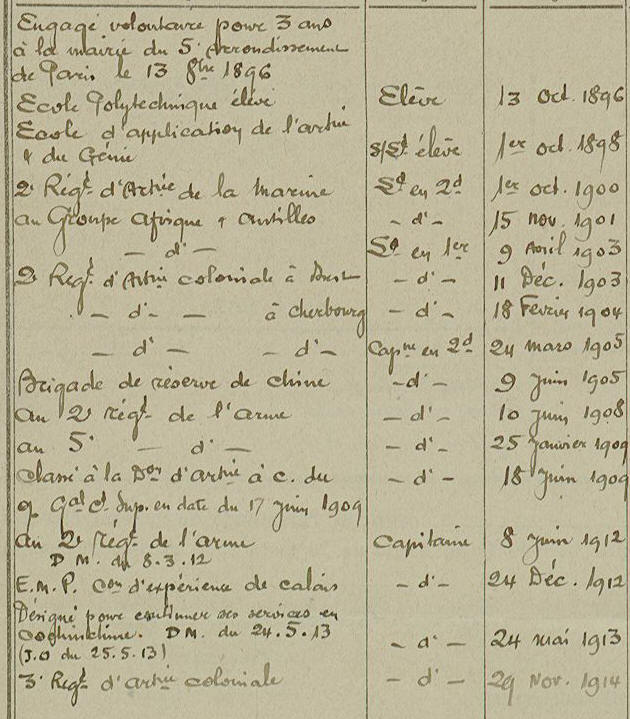 Engagé volontaire pour 3 ans
à la mairie du 5e arrondissement
de Paris le 13 8bre 1896
Ecole Polytechnique élève Elève 13 oct. 1896
Ecole d'application de l'artie
& du Génie s/Lt élève 1er oct. 1898
2e Régt d'Artie de la Marine Lt en 2d 1er oct. 1900
au Groupe Afrique & Antilles - d° - 15 nov. 1901
- d° - Lt en 1er 9 avril 1903
2e Régt d'Artie coloniale à Brest - d° - 11 Déc. 1903
- d° - à Cherbourg - d° - 18 Février 1904
- d° - - d° - Capne en 2d 24 mars 1905
Brigade de réserve de chine - d° - 9 juin 1905
au 2e régt de l'arme - d° - 10 juin 1908
au 5e - d° - - d° - 25 janvier 1909
classé à la Don d'artie à c. du - d° - 18 juin 1909
Gal Ct Sup. en date du 17 juin 1909
au 2e régt de l'arme Capitaine 8 juin 1912
D M. du 8.3.12
E.M.P. Con d'expérience de calais - d° - 24 Déc. 1912
Désigné pour continuer ses services en
Cochinchine. D M. du 24.5.13 - d° - 24 mai 1913
(J.O du 25.5.13)
3e Régt d'artie coloniale - d° - 29 Nov. 1914